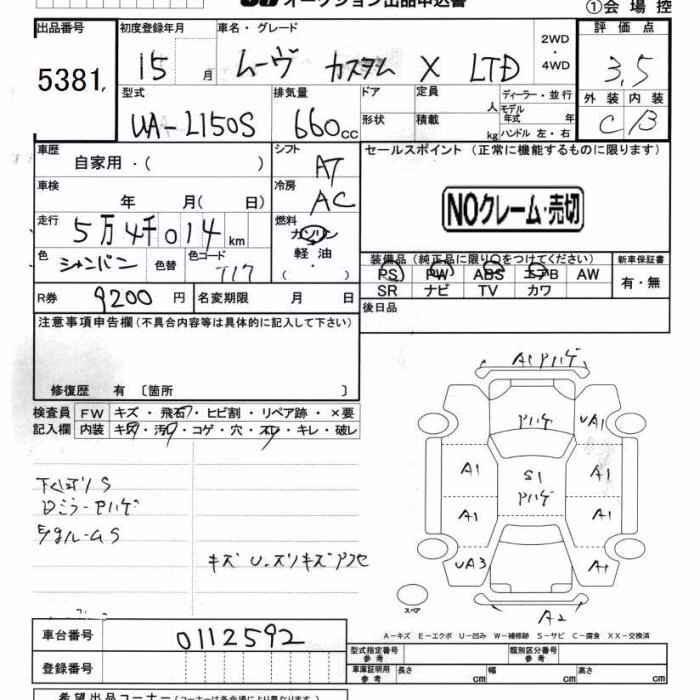 オークション出品申込書
①会場控
出品番号
5381
初度登録年月
15 月
車名・グレード
ムーヴ カスタム X LTD
2WD
・
4WD
評価点
3.5
外装 内装
C B
型式
UA-L150S
排気量
660cc
ドア
形状
定員
人
積載
kg
ディーラー・並行
モデル
年式 年
ハンドル 左・右
車歴
自家用・( )
シフト
AT
車検
年 月( 日)
冷房
AC
走行
5万4千014km
燃料
ガソリン
軽油
( ・ )
色
シャンパン
色替
色コード
T17
R券
9200円
名変期限 月 日
セールスポイント (正常に機能するものに限ります)
NOクレーム・売切
装備品(純正品に限り○をつけてください)
PS PW ABS エアB AW
SR ナビ TV カワ
新車保証書
有・無
後日品
注意事項申告欄(不具合内容等は具体的に記入して下さい)
修復歴 有〔箇所 〕
検査員
記入欄
FW キズ・飛石・ヒビ割・リペア跡・×要
内装 キズ・汚・コゲ・穴・スレ・キレ・破レ
下回りS
Dミラーアハゲ
キズ U.スリキズアセ
A1アハゲ
アハゲ
UA1
A1
S1
アハゲ
A1
A1
A1
UA3
A1
スペア
A2
A-キズ E-エクボ U-凹み W-補修跡 S-サビ C-腐食 XX-交換済
車台番号
0112592
登録番号
型式指定番号
参考
類別区分番号
参考
車庫証明用
参考
長さ cm
幅 cm
高さ cm
希望出品コーナー(コーナーは各会場により異なります。)